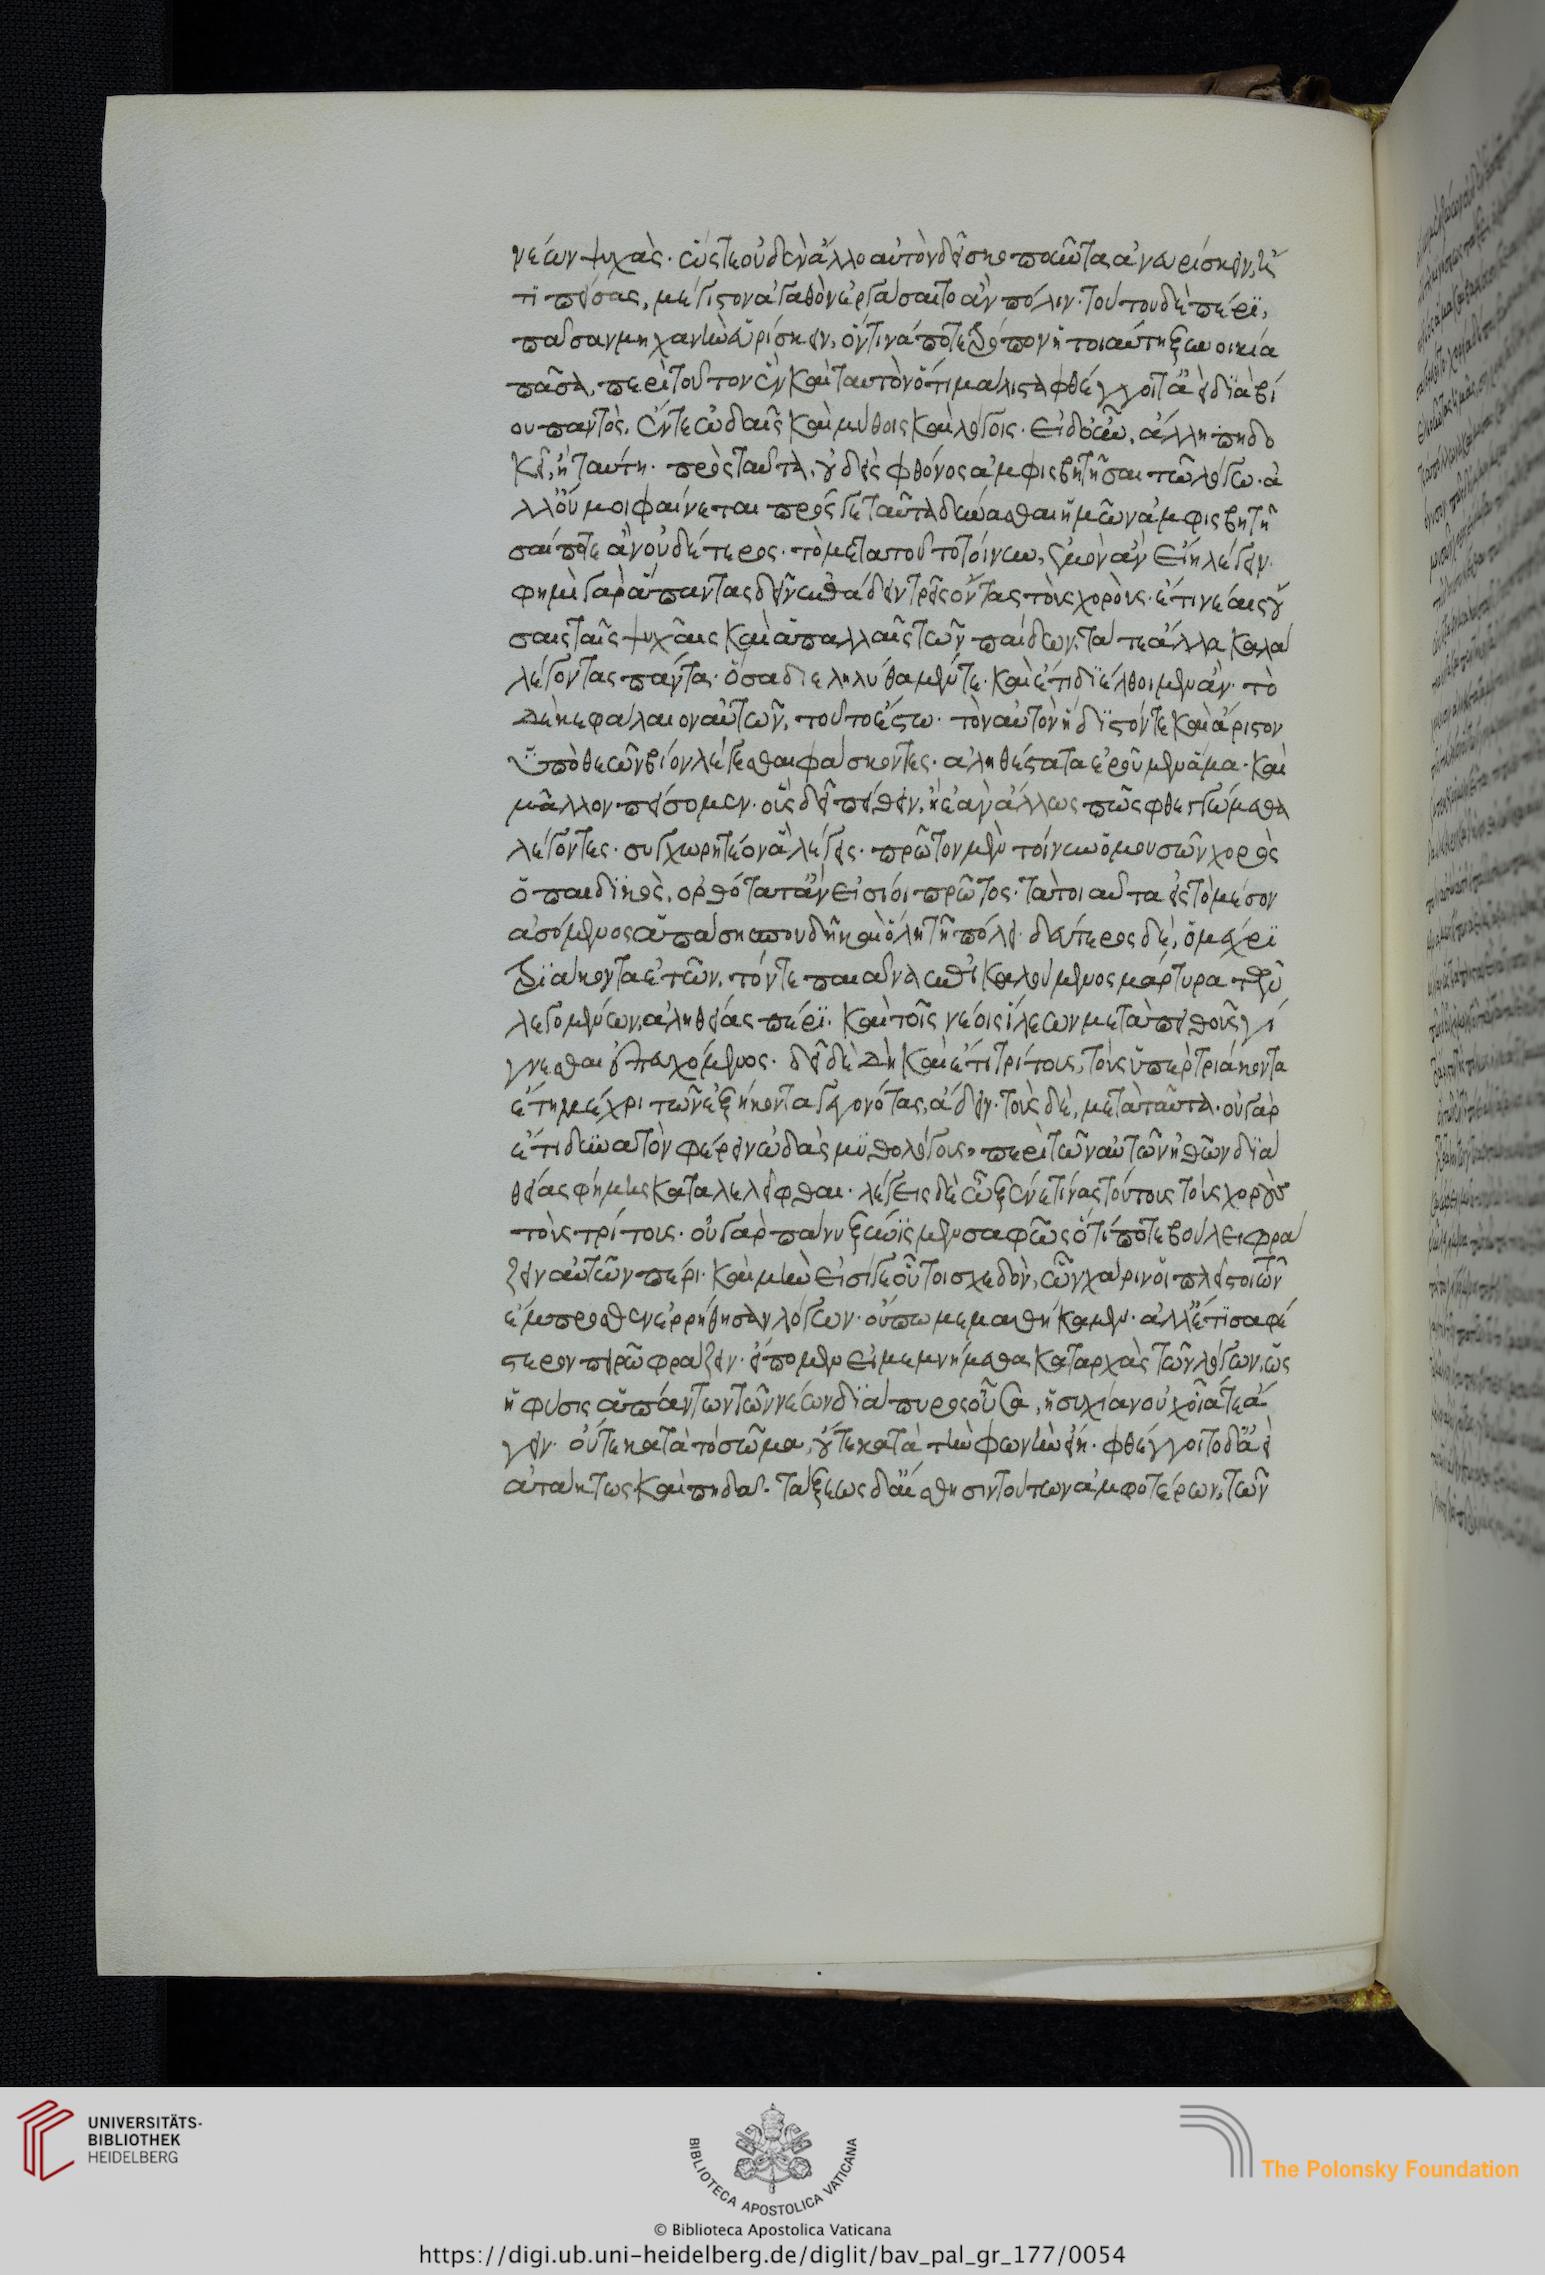 νέων ψυχὰς· ὥστε οὐδὲν ἄλλο αὐτὸν δεῖ σκοποῦντα ἀνευρίσκειν, ἢ
τί πείσας, μέγιστον ἀγαθὸν ἐργάσαιτο ἂν πόλιν. τούτου δὲ πέρι,
πᾶσαν μηχανὴν εὑρίσκειν, ὅντινά ποτε τρόπον ἡ τοιαύτη ξυνοικία
πᾶσα, περὶ τούτων ἓν καὶ ταυτὸν ὅτι μάλιστα φθέγγοιτ' ἀεὶ διὰ βί
ου παντὸς, ἔν τε ᾠδαῖς καὶ μύθοις καὶ λόγοις. εἰ δ' οὖν, ἄλλη πη δο
κεῖ, ἢ ταύτη. πρὸς ταῦτα, οὐδεὶς φθόνος ἀμφισβητῆσαι τῷ λόγῳ. ἀ
λλ' οὔ μοι φαίνεται πρός γε ταῦτα δύνασθαι ἡμῶν ἀμφισβητῆ
σαί ποτε ἂν οὐδέτερος. τὸ μετὰ τοῦτο τοίνυν, ἐμὸν ἂν εἴη λέγειν.
φημὶ γὰρ ἅπαντας δεῖν ἐπᾴδειν τρεῖς ὄντας τοὺς χοροὺς· ἔτι νέαις οὔ
σαις ταῖς ψυχαῖς καὶ ἁπαλλαῖς τῶν παίδων, τά τε ἄλλα καλὰ
λέγοντας πάντα· ὅσα διεληλύθαμέν τε· καὶ ἔτι διέλθοιμεν ἄν· τὸ
δὲ κεφάλαιον αὐτῶν, τοῦτο ἔστω· τὸν αὐτὸν ἥδιστόν τε καὶ ἄριστον
ὑπὸ θεῶν βίον λέγεσθαι φάσκοντες· ἀληθέστατα ἐροῦμεν ἅμα· καὶ
μᾶλλον πείσομεν· οἷς δεῖ πείθειν, ἢ ἐὰν ἄλλως πως φθεγγώμεθα
λέγοντες. συγχωρητέον ἃ λέγεις. πρῶτον μὲν τοίνυν ὁ μουσῶν χορὸς
ὁ παιδικὸς, ὀρθότατ' ἂν εἰσίοι πρῶτος· τὰ τοιαῦτα εἰς τὸ μέσον
ἀσόμενος ἁπάσῃ σπουδῇ καὶ ὅλῃ τῇ πόλει· δεύτερος δὲ, ὁ μέχρι
τριάκοντα ἐτῶν, τόν τε παιᾶνα ἐπικαλούμενος μάρτυρα τῶν
λεγομένων ἀληθείας πέρι. καὶ τοῖς νέοις ἵλεων μετὰ πειθοῦς γί
γνεσθαι ἐπευχόμενος· δεῖ δὲ δὴ καὶ ἔτι τρίτους, τοὺς ὑπὲρ τριάκοντα
ἔτη μέχρι τῶν ἑξήκοντα γεγονότας, ᾄδειν. τοὺς δὲ, μετὰ ταῦτα· οὐ γὰρ
ἔτι δυνατὸν φέρειν ᾠδὰς μυθολόγους, περὶ τῶν αὐτῶν ἠθῶν διὰ
θείας φήμης καταλελεῖφθαι. λέγεις δὲ ὦ ξένε τίνας τούτους τοὺς χοροὺς
τοὺς τρίτους· οὐ γὰρ πάνυ ξυνίϊσμεν σαφῶς ὅ τί ποτε βούλει φρά
ζειν αὐτῶν πέρι. καὶ μὴν εἰσί γε οὗτοι σχεδὸν, ὧν χάριν οἱ πλεῖστοι τῶν
ἔμπροσθεν ἐρρήθησαν λόγων. οὔπω μεμαθήκαμεν· ἀλλ' ἔτι σαφέ
στερον πειρῶ φράζειν. εἴπομεν εἰ μεμνήμεθα κατ' ἀρχὰς τῶν λόγων, ὡς
ἡ φύσις ἁπάντων τῶν νέων διάπυρος οὖσα, ἡσυχίαν οὐχ οἵα τε ἄ
γειν· οὔτε κατὰ τὸ σῶμα, οὔτε κατὰ τὴν φωνὴν εἴη. φθέγγοιτο δ' ἀεὶ
ἀτάκτως καὶ πηδᾷ. τάξεως δ' αἴσθησιν τούτων ἀμφοτέρων, τῶν
UNIVERSITÄTS-
BIBLIOTHEK
HEIDELBERG
BIBLIOTECA APOSTOLICA VATICANA
The Polonsky Foundation
© Biblioteca Apostolica Vaticana
https://digi.ub.uni-heidelberg.de/diglit/bav_pal_gr_177/0054